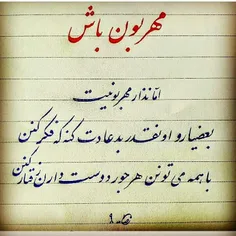 مهربون باش
امّا نذار مهربونیت
بعضیا رو اونقدر بد عادت کنه که فکر کنن
با همه می تونن هر جور دوست دارن رفتار کنن